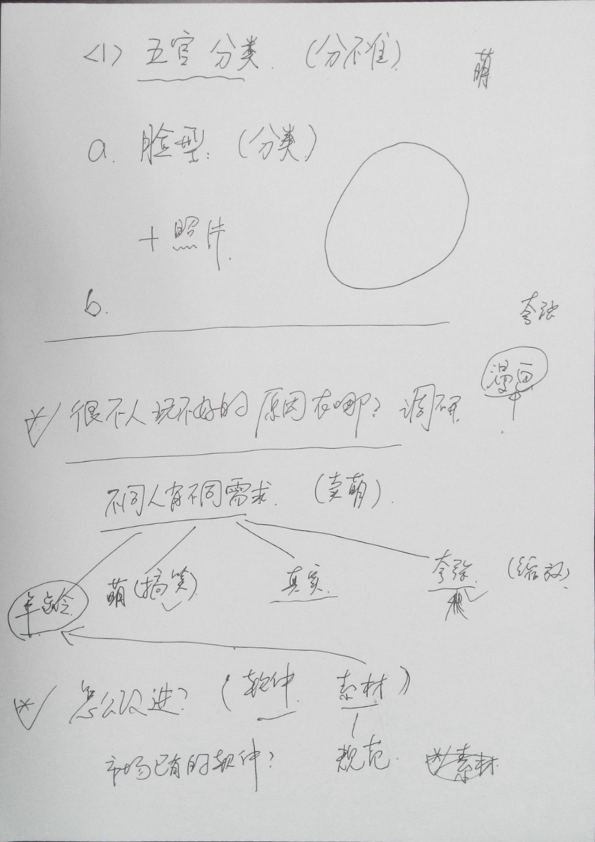 <1> 五官分类 (分不准)
萌
a. 脸型: (分类)
+ 照片
b.
夸张
漫画
很不人说不好的原因在哪? 调研
不同人有不同需求. (卖萌).
年龄 萌(搞笑) 真实 夸张 (缩放)
怎么改进? (软件 素材)
市场已有的软件? 规范. 素材